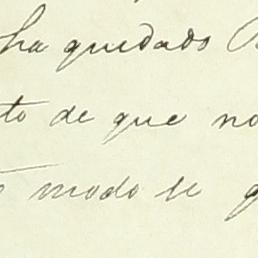 ha quedado
to de que no
modo se